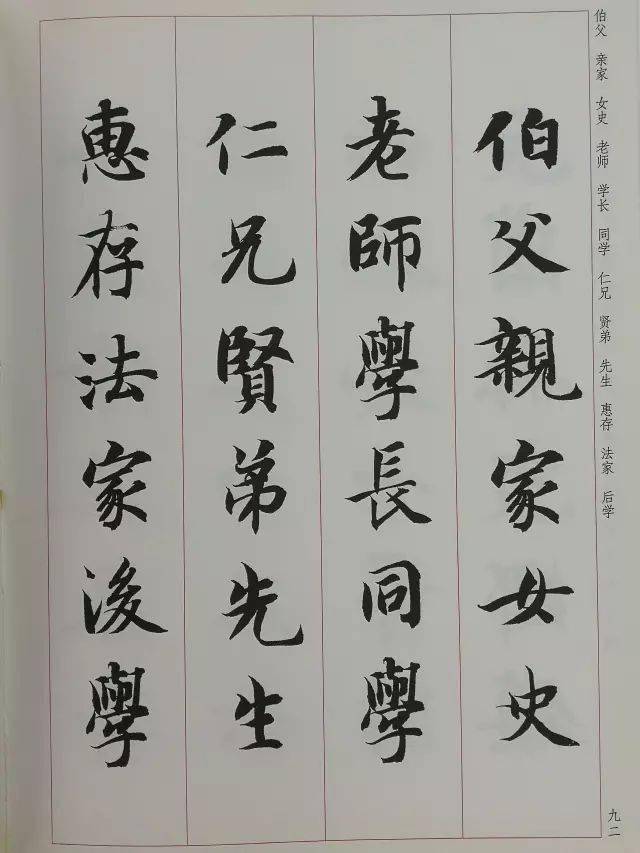 伯父 亲家 女史 老师 学长 同学 仁兄 贤弟 先生 惠存 法家 后学
伯父親家女史
老師學長同學
仁兄賢弟先生
惠存法家後學
九二